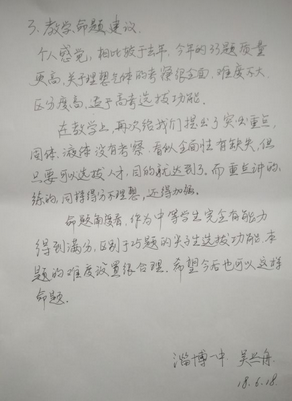 3、教学、命题建议
个人感觉，相比较于去年，今年的33题质量
更高，关于理想气体的考察很全面，难度不大，
区分度高，适于高考选拔功能。
在教学上，再次给我们提出了突出重点，
固体、液体没有考察，看似全面性有缺失，但
只要可以选拔人才，目的就达到了。而重点讲的，
练的，同样得分不理想，还得加强。
命题角度看，作为中等学生完全有能力
得到满分，区别于巧题的尖子生选拔功能，本
题的难度设置很合理。希望今后也可以这样
命题。
淄博一中 吴
18.6.18